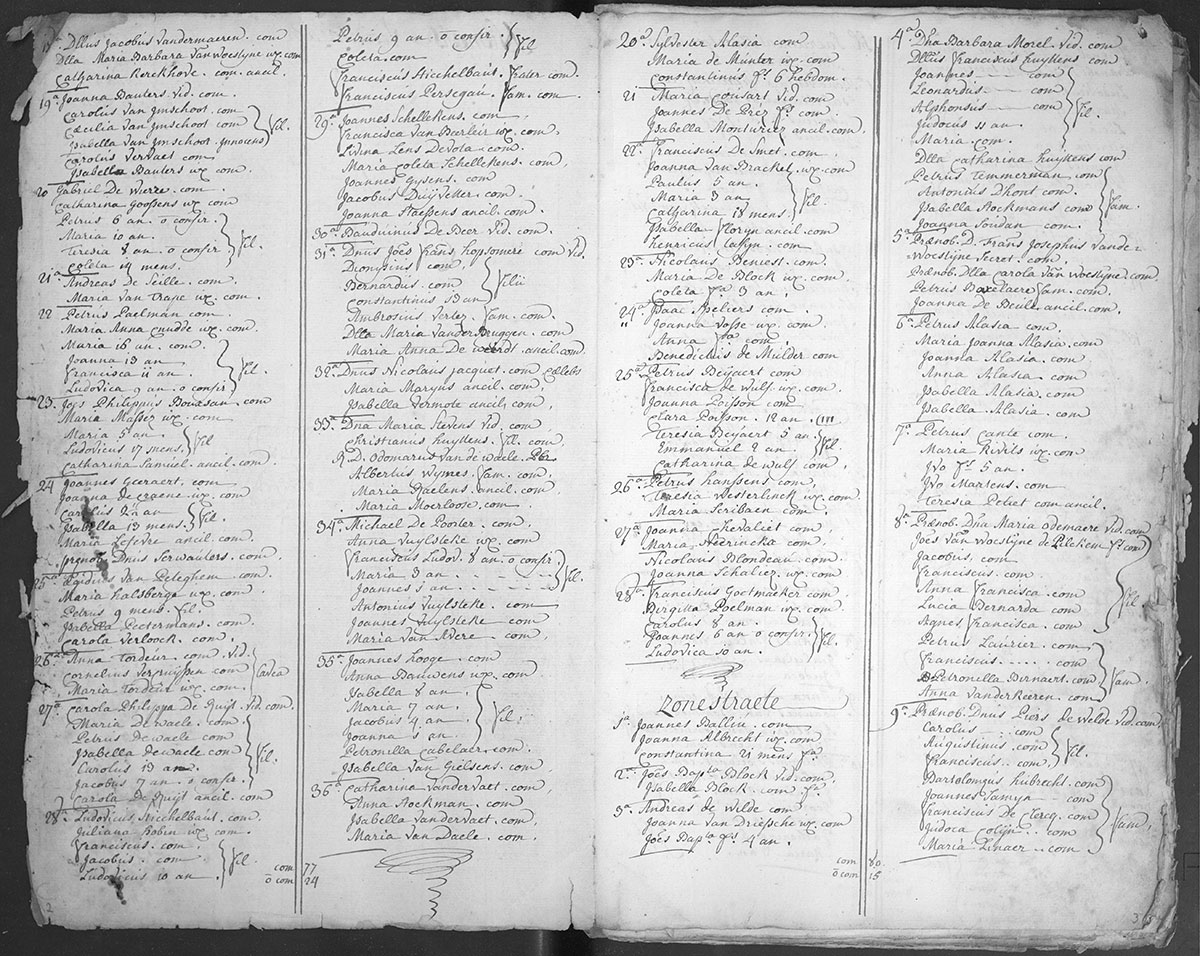 Dllus Jacobus Vandermaeren . com
Dlla Maria Barbara Van Woestyne ux. com
Catharina Kerckhove . com . ancil.
19ª Joanna Bauters vid. com
Carolus Van Imschoot com
Cæcilia Van Imschoot com
Isabella Van Imschoot . innocens
fil.
Carolus Vervaet com
Isabella Bauters ux. com
20 Gabriel De Wierze . com
Catharina Goossens ux com
Petrus 6 an . o confir .
Maria 10 an .
Teresia 8 an . o confir
Coleta 14 mens .
fil.
21ª Andreas de Seille . com
Maria Van Trape ux. com
22 Petrus Paelman . com
Maria Anna Cnudde ux. com
Maria 16 an . com
Joanna 13 an
Francisca 11 an
Ludovica 9 an . o confir
fil.
23. Joes Philippus . com
Maria ux. com
Maria 5 an .
Ludovicus 17 mens .
fil.
Catharina Samuel . ancil . com
24 Joannes Geeraert . com
Joanna de Craene ux. com
Carolus 2 an
Isabella 13 mens .
fil.
Maria Lefevre ancil . com
prænob. Dnus Serwauters . com
25ª Ægidius Van Peteghem . com
Maria Halsberge ux. com
Petrus 9 mens . fil.
Isabella Peetermans . com
Carola Verloock . com .
26ª Anna Tordeur . com . vid.
Cornelius Verpuyssen com
Maria Tordeur ux. com
cavea
27ª Carola Philippa De Buijt vid. com
Maria De Waele . com
Petrus de Waele com
Isabella Dewaele com
Carolus 13 an
Jacobus 7 an . o confir .
fil.
Carola De Buijt ancil . com
28ª Ludovicus Michelbaut . com
Juliana Robin ux. com
Franciscus . com .
Jacobus . com
Ludovicus 10 an
fil.
com 77
o com 24
2
Petrus 9 an . o confir .
Coleta . com
fil
Franciscus Michelbaut . frater . com
Franciscus Persegau . fam . com .
29ª Joannes Schellekens . com ,
Francisca Van Baeleir ux. com
Livina Lens Devota . com .
Maria Coleta Schellekens . com ,
Joannes Gysens . com
Jacobus Duijvetter . com
Joanna Staessens ancil . com
30ª Bauduinus De Beer vid. com
31ª Dnus Joes Frans Hopsomere com vid.
Dionysius com
Bernardus . com
Constantinus 13 an
filii
Ambrosius Verley fam . com
Dlla Maria Vander Bruggen . com
Maria Anna De Weerdt ancil . com
32ª Dnus Nicolaus Jacquet . com Cælebs
Maria Maryns ancil . com ,
Isabella Vermote ancil , com ,
33ª Dna Maria Stevens vid . com ,
Christianus Huyttens fil . com ,
R. D. Odomarus van de Waele . Pbr .
Albertus Wymes fam . com ,
Maria Baelens . ancil . com
Maria Moerloose , com ,
34ª Michael De Pooter . com
Anna Vuylsteke ux. com
Franciscus Ludov. 8 an . o confir
Maria 3 an . - - - - -
Joannes 5 an - - - -
fil .
Antonius Vuylsteke . com
Joannes Vuylsteke . com
Maria Van Avere . com ,
35ª Joannes Hooge . com
Anna Bauwens ux. com
Isabella 8 an .
Maria 7 an .
Jacobus 4 an .
Joanna 1 an
fil .
Petronilla Cabelaer . com
Isabella Van Gielsens . com
36ª Catharina Vandervaet . com ,
Anna Stockman . com
Isabella Vandervaet . com
Maria Van Daele . com
20ª Sylvester Alasia com
Maria de Munter ux. com
Constantinus fs. 6 hebdom .
21 Maria Cousart vid . com
Joannes De Prez fs. com
Isabella Montureer ancil . com
22ª Franciscus De Smet . com
Joanna Van Brackel ux. com
Paulus 5 an .
Maria 3 an
Catharina 18 mens .
fil .
Isabella Floryn ancil . com
Henricus Casyn . com
23ª Nicolaus Beniest . com
Maria De Block ux. com
Coleta fa. 3 an ,
24ª Isaac Speliers com .
" Joanna Vosse ux. com
Anna fa. com
Benedictus de Mulder com
25ª Petrus Beijaert com
Francisca de Wulf ux. com
Joanna Poisson com
Clara Poisson . 12 an .
Teresia Beijaert 5 an
Emmanuel 2 an
fil .
Catharina de Wulf com ,
26ª Petrus Hanssens com ,
Teresia Westerlinck ux. com
Maria Scribaen com .
27ª Joanna Chevaliet com ,
Maria Heerincka com
Nicolaus Blondeau . com
Joanna Schalier ux. com
28ª Franciscus Goetmaeker com
Birgitta Poelman ux. com
Carolus 8 an .
Joannes 6 an o confir
Ludovica 10 an .
fil .
Zonestraete
1ª Joannes Balliu . com
Joanna Albrecht ux. com
Constantina 21 mens fa.
2. Joes Bapta Block vid . com
Isabella Block . com fa.
3ª Andreas de Wilde com
Joanna Van Driessche ux. com
Joes Bapta fs. 4 an .
com 80
o com 15
4ª Dna Barbara Morel . vid . com
Dllus Franciscus Huyttens com
Joannes — com
Leonardus — com
Alphonsus — com
Judocus 11 an
Maria com
fil .
Dlla Catharina Huyttens com
Petrus Temmerman com
Antonius Dhont com
Isabella Stockmans com
Joanna Soudan com
fam .
5ª Prænob. D. Frans Josephus Vande
Woestijne Secret . com ,
Prænob. Dlla Carola Van Woestyne com
Petrus Baxelaere fam . com
Joanna De Beule ancil . com
6ª Petrus Alasia com
Maria Joanna Alasia . com
Joanna Alasia . com
Anna Alasia . com
Isabella Alasia . com
Isabella . Alasia . com
7ª Petrus Cante com
Maria Rivits ux. com
Ivo fs. 5 an .
Ivo Martens . com
Teresia Petiet com ancil .
8ª Prænob. Dna Maria Odemaere vid. com
Joes Van Woestijne de Pilckem fs. com
Jacobus . com
Franciscus . com
Anna Francisca . com
Lucia Bernarda com
Agnes Francisca . com
fil
Petrus Laurier . com
Franciscus . . . . . com
Petronella Bernaert . com
Anna Vanderkeeren . com
fam .
9ª Prænob. Dnus Piers de Welde vid. com
Carolus — com
Augustinus . com
Franciscus . com
fil .
Bartolomæus Hubrecht . com
Joannes Samyn — com
Franciscus De Clercq . com
Judoca Colijn . com
Maria Linaer . . com
fam ,
3